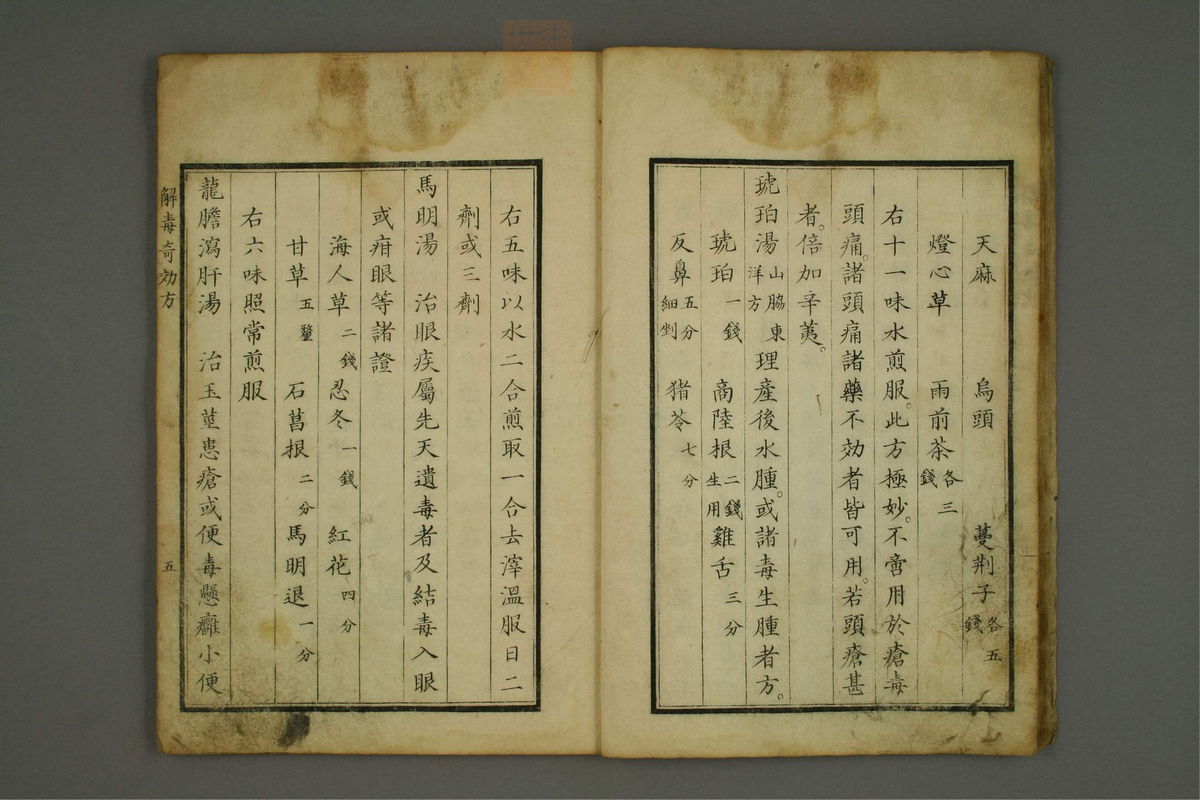 天麻　烏頭　蔓荊子各五錢
燈心草　雨前茶各三錢
右十一味水煎服。此方極妙。不啻用於瘡毒
頭痛。諸頭痛諸藥不効者皆可用。若頭瘡甚
者。倍加辛荑。
琥珀湯山脇東洋方　理産後水腫。或諸毒生腫者方。
琥珀一錢　商陸根二錢生用　雞舌三分
反鼻五分細剉　猪苓七分
右五味以水二合煎取一合去滓溫服日二
劑或三劑
馬明湯　治眼疾屬先天遺毒者及結毒入眼
或疳眼等諸證
海人草二錢　忍冬一錢　紅花四分
甘草五釐　石菖根二分　馬明退一分
右六味照常煎服
龍膽瀉肝湯　治玉莖患瘡或便毒懸癰小便
解毒奇効方　五